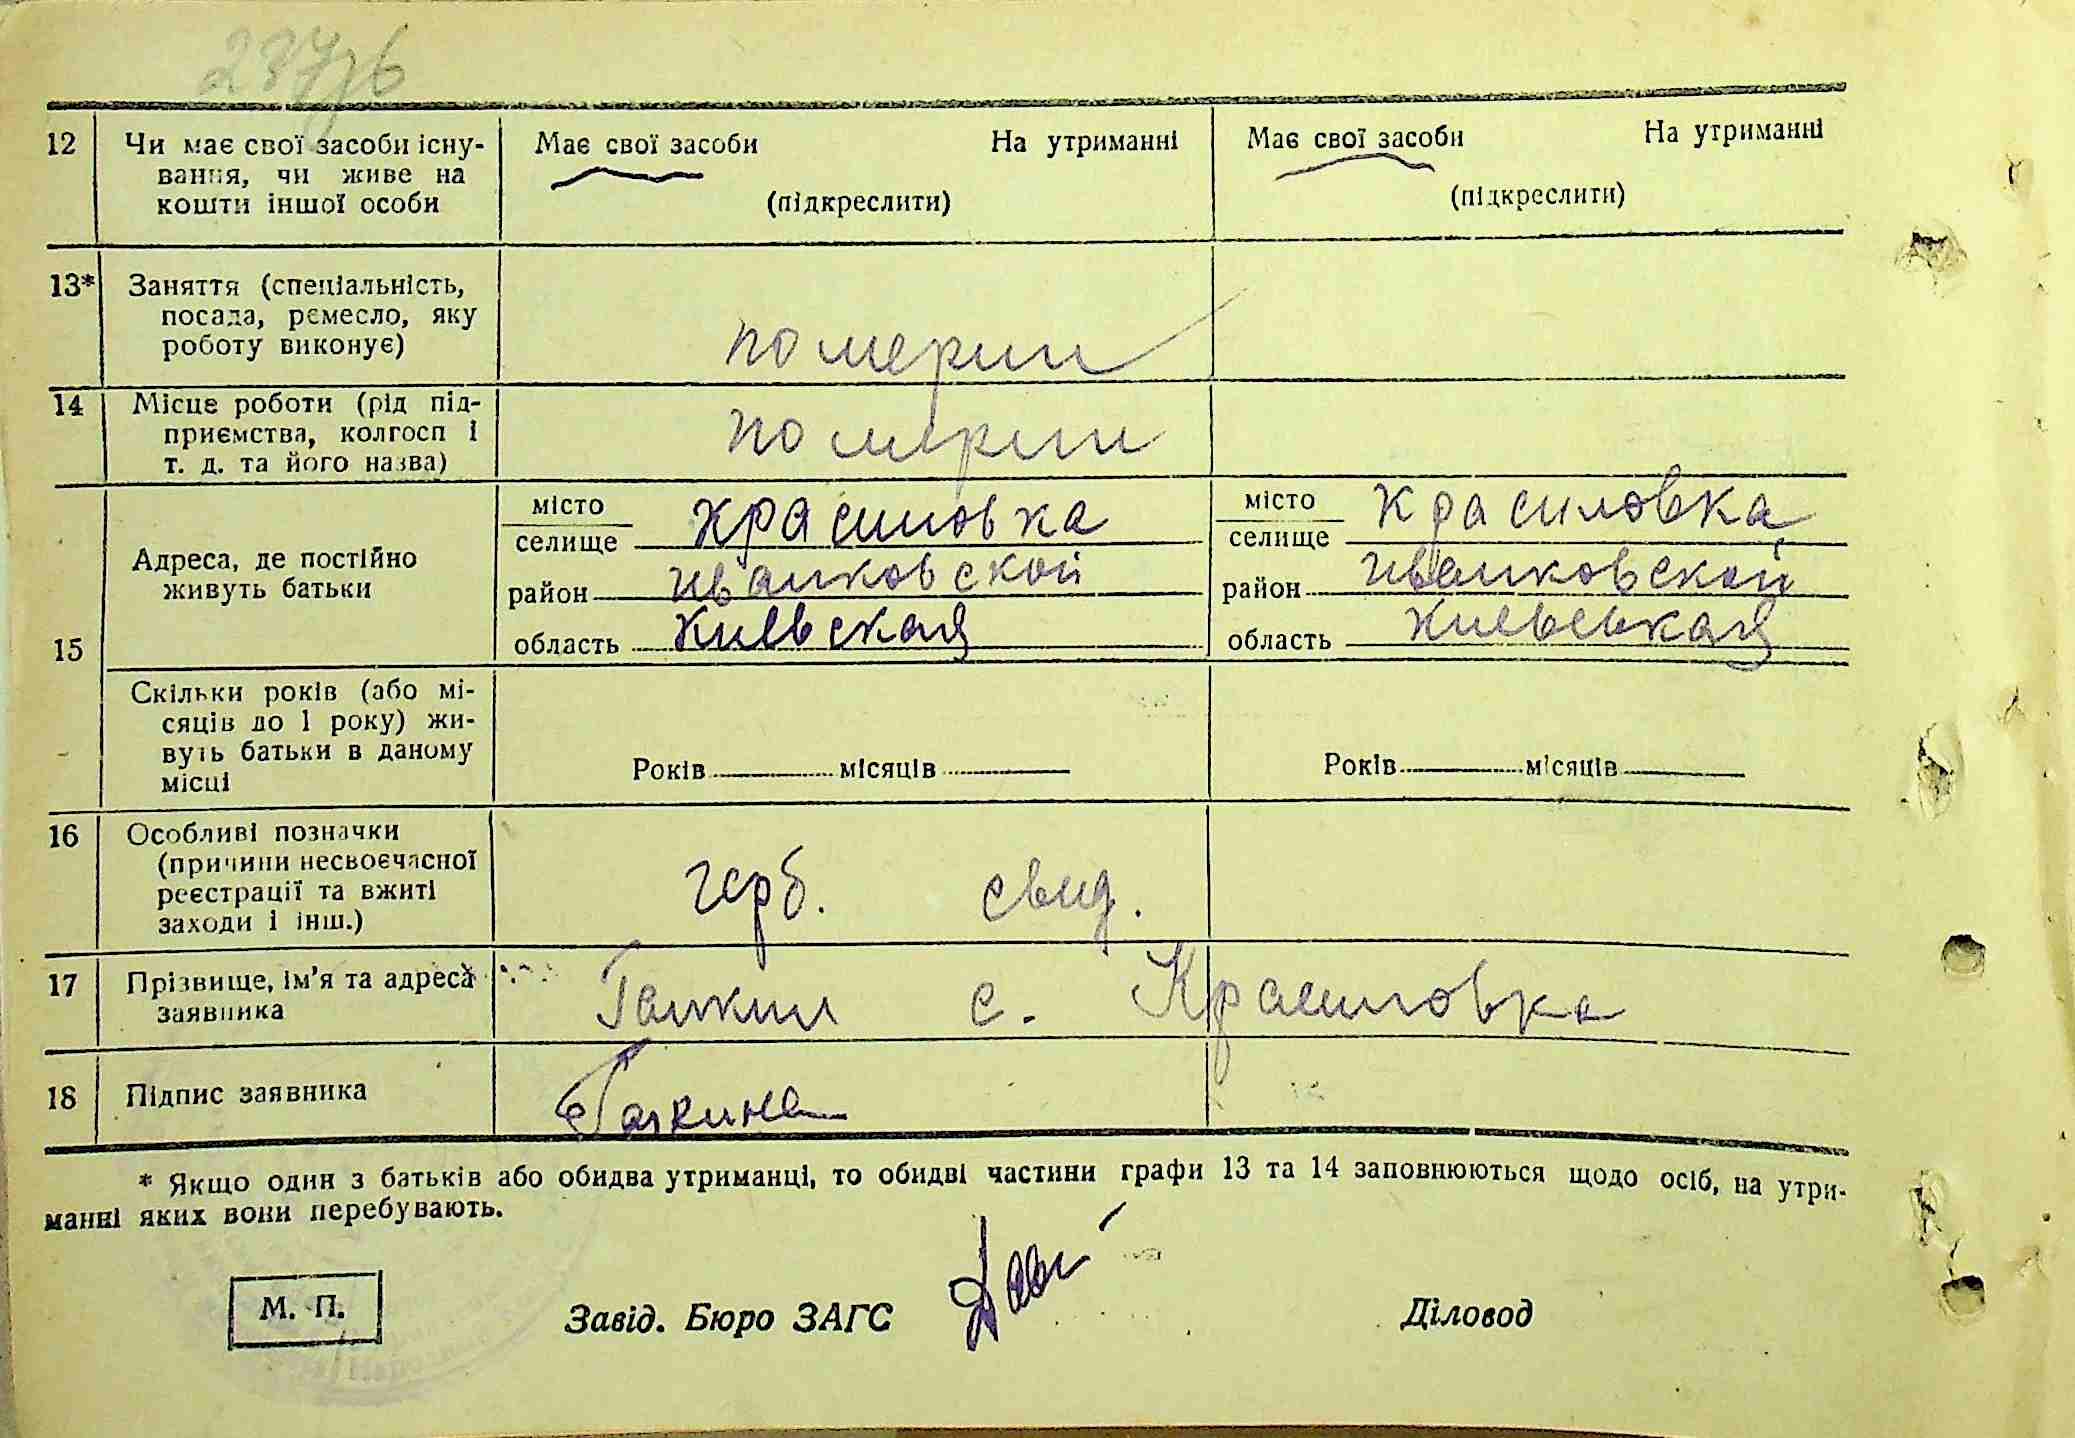 237/6
12 Чи має свої засоби існу- Має свої засоби На утриманні Має свої засоби На утриманні
вання, чи живе на
кошти іншої особи (підкреслити) (підкреслити)
13* Заняття (спеціальність,
посада, ремесло, яку
роботу виконує) померли
14 Місце роботи (рід під-
приємства, колгосп і померли
т. д. та його назва)
місто Красиловка місто Красиловка
селище селище
15 Адреса, де постійно
живуть батьки
район Иванковской район Иванковской
область Киевская область Киевськая
Скільки років (або мі-
сяців до 1 року) жи-
вуть батьки в даному
місці Років місяців Років місяців
16 Особливі позначки
(причини несвоєчасної
реєстрації та вжиті герб. свид.
заходи і інш.)
17 Прізвище, ім'я та адреса Галкин с. Красиловка
заявника
18 Підпис заявника Галкина
* Якщо один з батьків або обидва утриманці, то обидві частини графи 13 та 14 заповнюються щодо осіб, на утри-
манні яких вони перебувають.
М. П. Завід. Бюро ЗАГС Діловод